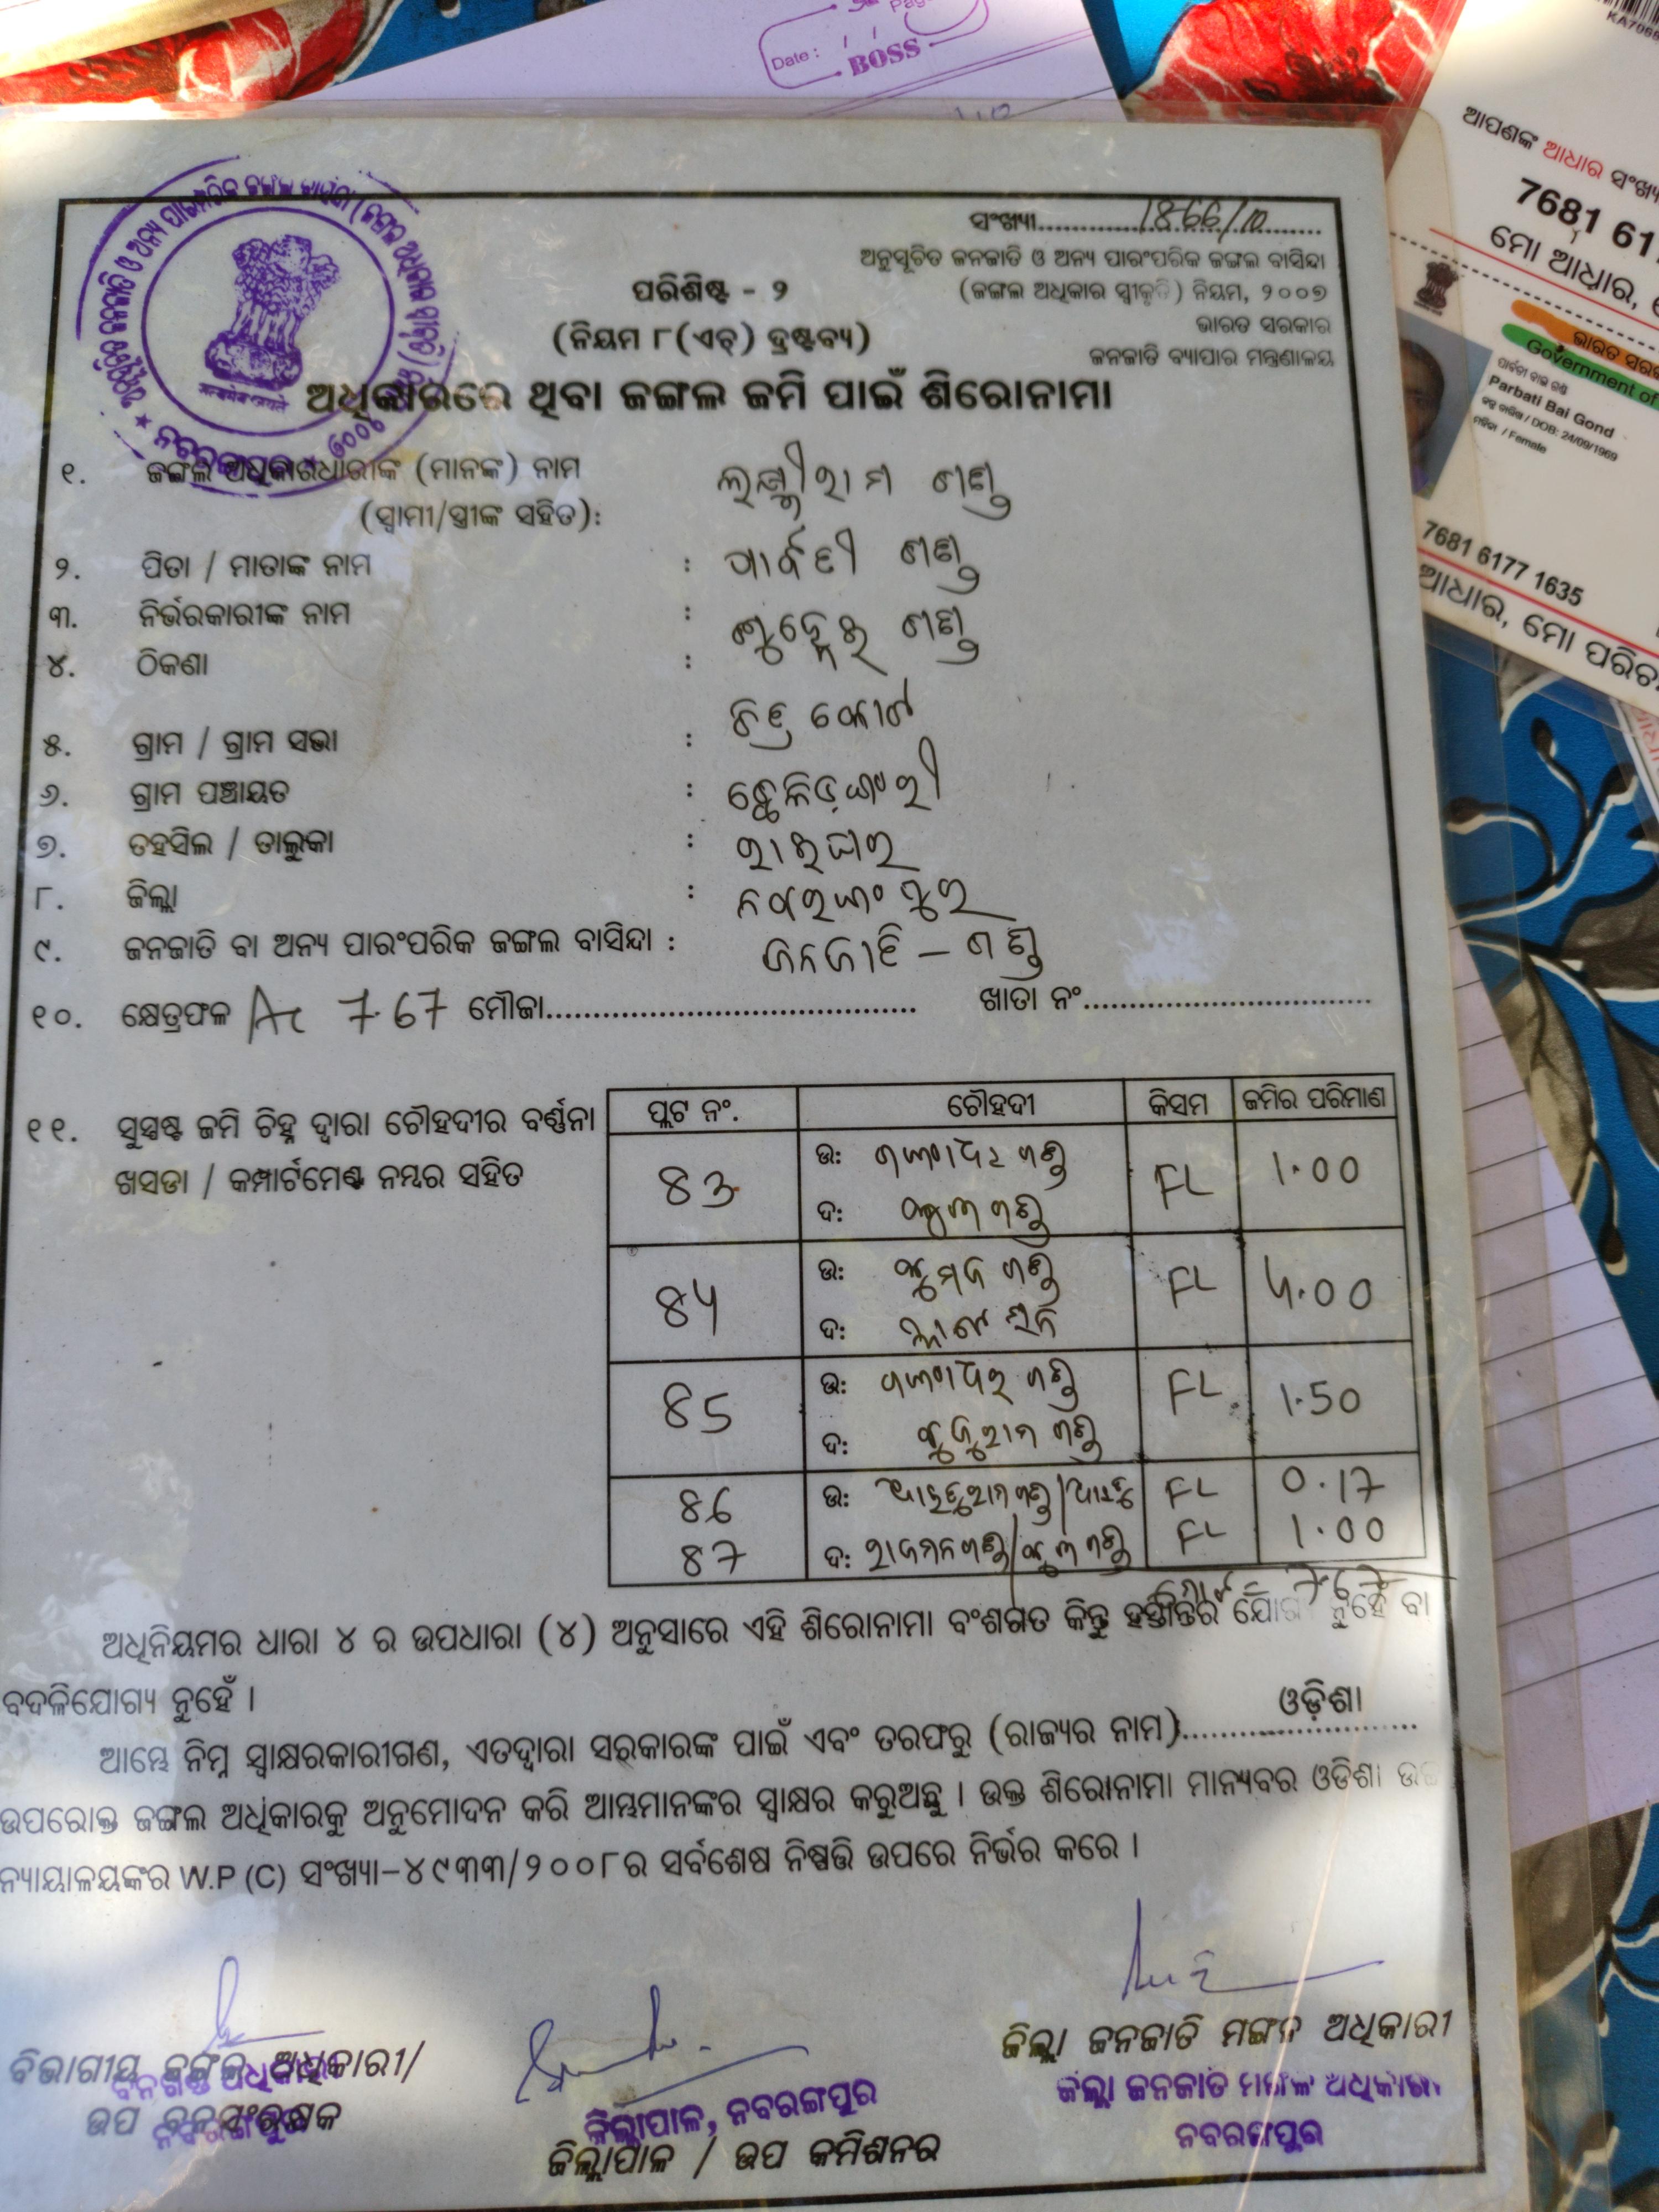 Date :
Page
BOSS
ସଂଖ୍ୟା....................1866/10..........
ଅନୁସୂଚିତ ଜନଜାତି ଓ ଅନ୍ୟ ପାରଂପରିକ ଜଙ୍ଗଲ ବାସିନ୍ଦା
(ଜଙ୍ଗଲ ଅଧିକାର ସ୍ୱୀକୃତି) ନିୟମ, ୨୦୦୭
ଭାରତ ସରକାର
ଜନଜାତି ବ୍ୟାପାର ମନ୍ତ୍ରଣାଳୟ
ପରିଶିଷ୍ଟ - ୨
(ନିୟମ ୮(ଏଚ୍) ଦ୍ରଷ୍ଟବ୍ୟ)
ଅଧିକାରରେ ଥିବା ଜଙ୍ଗଲ ଜମି ପାଇଁ ଶିରୋନାମା
୧. ଜଙ୍ଗଲ ଅଧିକାରଧାରୀଙ୍କ (ମାନଙ୍କ) ନାମ ଲକ୍ଷ୍ମୀରାମ ଗଣ୍ଡ
(ସ୍ୱାମୀ/ସ୍ତ୍ରୀଙ୍କ ସହିତ):
୨. ପିତା / ମାତାଙ୍କ ନାମ : ପାର୍ବତୀ ଗଣ୍ଡ
୩. ନିର୍ଭରକାରୀଙ୍କ ନାମ : ଗଣ୍ଡ
୪. ଠିକଣା :
୫. ଗ୍ରାମ / ଗ୍ରାମ ସଭା : ଚିତ୍ରକୋଟ
୬. ଗ୍ରାମ ପଞ୍ଚାୟତ :
୭. ତହସିଲ / ତାଲୁକା : ରାଇଘର
୮. ଜିଲ୍ଲା : ନବରଙ୍ଗପୁର
୯. ଜନଜାତି ବା ଅନ୍ୟ ପାରଂପରିକ ଜଙ୍ଗଲ ବାସିନ୍ଦା : ଜନଜାତି – ଗଣ୍ଡ
୧୦. କ୍ଷେତ୍ରଫଳ Ac 7.67 ମୌଜା........................................ ଖାତା ନଂ................................
୧୧. ସୁସ୍ପଷ୍ଟ ଜମି ଚିହ୍ନ ଦ୍ୱାରା ଚୌହଦୀର ବର୍ଣ୍ଣନା
ଖସଡା / କମ୍ପାର୍ଟମେଣ୍ଟ ନମ୍ବର ସହିତ
ପ୍ଲଟ ନଂ. ଚୌହଦୀ କିସମ ଜମିର ପରିମାଣ
83 ଉ: ଗଙ୍ଗାଧର ଗଣ୍ଡ FL 1.00
ଦ: ଗଣ୍ଡ
84 ଉ: ଗଣ୍ଡ FL 4.00
ଦ:
85 ଉ: ଗଙ୍ଗାଧର ଗଣ୍ଡ FL 1.50
ଦ: ଗଣ୍ଡ
86 ଉ: FL 0.17
87 ଦ: FL 1.00
7.67
ଅଧିନିୟମର ଧାରା ୪ ର ଉପଧାରା (୪) ଅନୁସାରେ ଏହି ଶିରୋନାମା ବଂଶଗତ କିନ୍ତୁ ହସ୍ତାନ୍ତର ଯୋଗ୍ୟ ନୁହେଁ ବା
ବଦଳିଯୋଗ୍ୟ ନୁହେଁ ।
ଓଡ଼ିଶା
ଆମ୍ଭେ ନିମ୍ନ ସ୍ୱାକ୍ଷରକାରୀଗଣ, ଏତଦ୍ୱାରା ସର୍କାରଙ୍କ ପାଇଁ ଏବଂ ତରଫରୁ (ରାଜ୍ୟର ନାମ)..........................
ଉପରୋକ୍ତ ଜଙ୍ଗଲ ଅଧିକାରକୁ ଅନୁମୋଦନ କରି ଆମ୍ଭମାନଙ୍କର ସ୍ୱାକ୍ଷର କରୁଅଛୁ । ଉକ୍ତ ଶିରୋନାମା ମାନ୍ୟବର ଓଡିଶା
ନ୍ୟାୟାଳୟଙ୍କର W.P (C) ସଂଖ୍ୟା–୪୯୩୩/୨୦୦୮ର ସର୍ବଶେଷ ନିଷ୍ପତ୍ତି ଉପରେ ନିର୍ଭର କରେ ।
ବିଭାଗୀୟ ଜଙ୍ଗଲ ଅଧିକାରୀ/
ଉପ ବନସଂରକ୍ଷକ
ଜିଲ୍ଲାପାଳ, ନବରଙ୍ଗପୁର
ଜିଲ୍ଲାପାଳ / ଉପ କମିଶନର
ଜିଲ୍ଲା ଜନଜାତି ମଙ୍ଗଳ ଅଧିକାରୀ
ଜିଲ୍ଲା ଜନଜାତି ମଙ୍ଗଳ ଅଧିକାରୀ
ନବରଙ୍ଗପୁର
ଆପଣଙ୍କ ଆଧାର ସଂଖ୍ୟା
7681 61
ମୋ ଆଧାର,
ଭାରତ ସରକାର
Government of
ପାର୍ବତୀ ବାଇ ଗଣ୍ଡ
Parbati Bai Gond
ଜନ୍ମ ତାରିଖ / DOB: 24/09/1969
ମହିଳା / Female
7681 6177 1635
ଆଧାର, ମୋ ପରିଚୟ